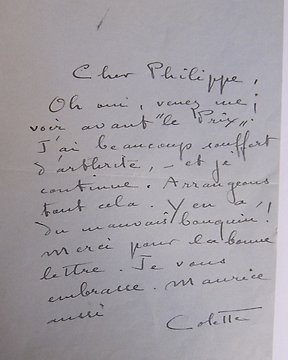 Cher Philippe,
Oh oui, venez me
voir avant "le Prix".
J'ai beaucoup souffert
d'arthrite, – et je
continue. Arrangeons
tout cela. Y en a
du mauvais bouquin!
Merci pour la bonne
lettre. Je vous
embrasse. Maurice
aussi
Colette